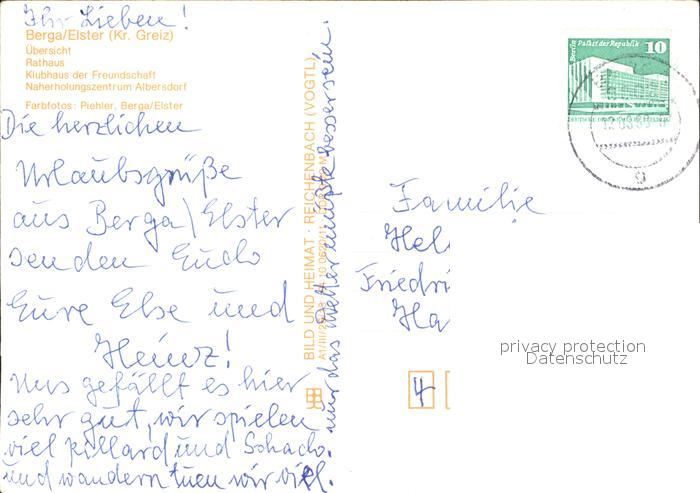 Ihr Lieben!
Berga/Elster (Kr. Greiz)
Übersicht
Rathaus
Klubhaus der Freundschaft
Naherholungszentrum Albersdorf
Farbfotos: Piehler, Berga/Elster
Die herzlichen
Urlaubsgrüße
aus Berga/Elster
senden Euch
Eure Else und
Heinz!
Uns gefällt es hier
sehr gut, wir spielen
viel Billard und Schach.
und wandern tuen wir viel.
nur das Wetter müßte besser sein.
BILD UND HEIMAT · REICHENBACH (VOGTL)
A1/III/26/13
Berlin Palast der Republik 10
Familie
Hel
Friedri
Ha
4
privacy protection
Datenschutz